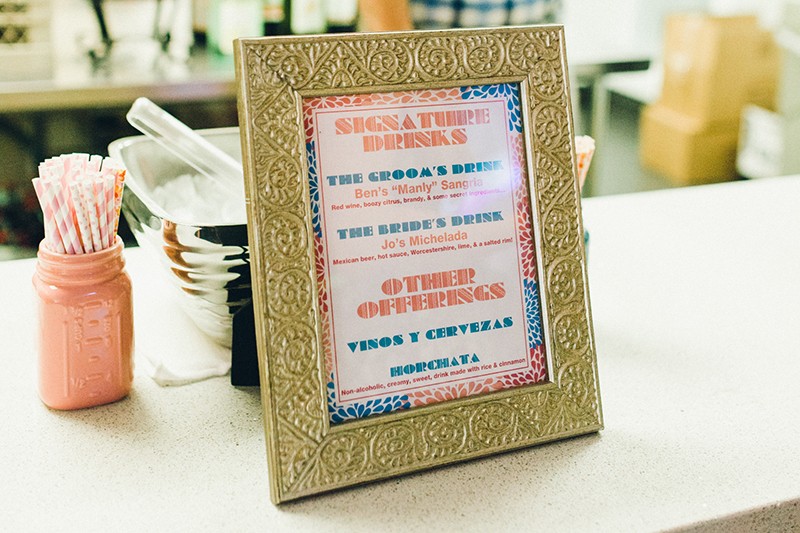 SIGNATURE
DRINKS
THE GROOM'S DRINK
Ben's "Manly" Sangria
Red wine, boozy citrus, brandy, & some secret ingredients...
THE BRIDE'S DRINK
Jo's Michelada
Mexican beer, hot sauce, Worcestershire, lime, & a salted rim!
OTHER
OFFERINGS
VINOS Y CERVEZAS
HORCHATA
Non-alcoholic, creamy, sweet, drink made with rice & cinnamon